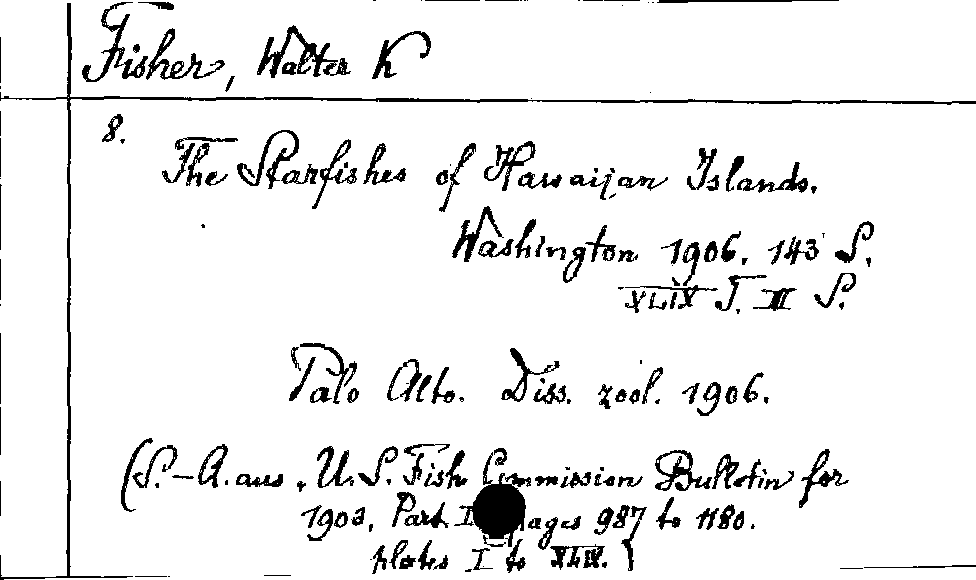 Fisher, Walter K
8.
The Starfishes of Hawaiian Islands.
Washington 1906. 143 S.
XLIX T. III S.
Palo Alto. Diss. zool. 1906.
(S.-A. aus „U.S. Fish Commission Bulletin for
1903, Part ages 987 to 1180.
plates I to XLIX.)